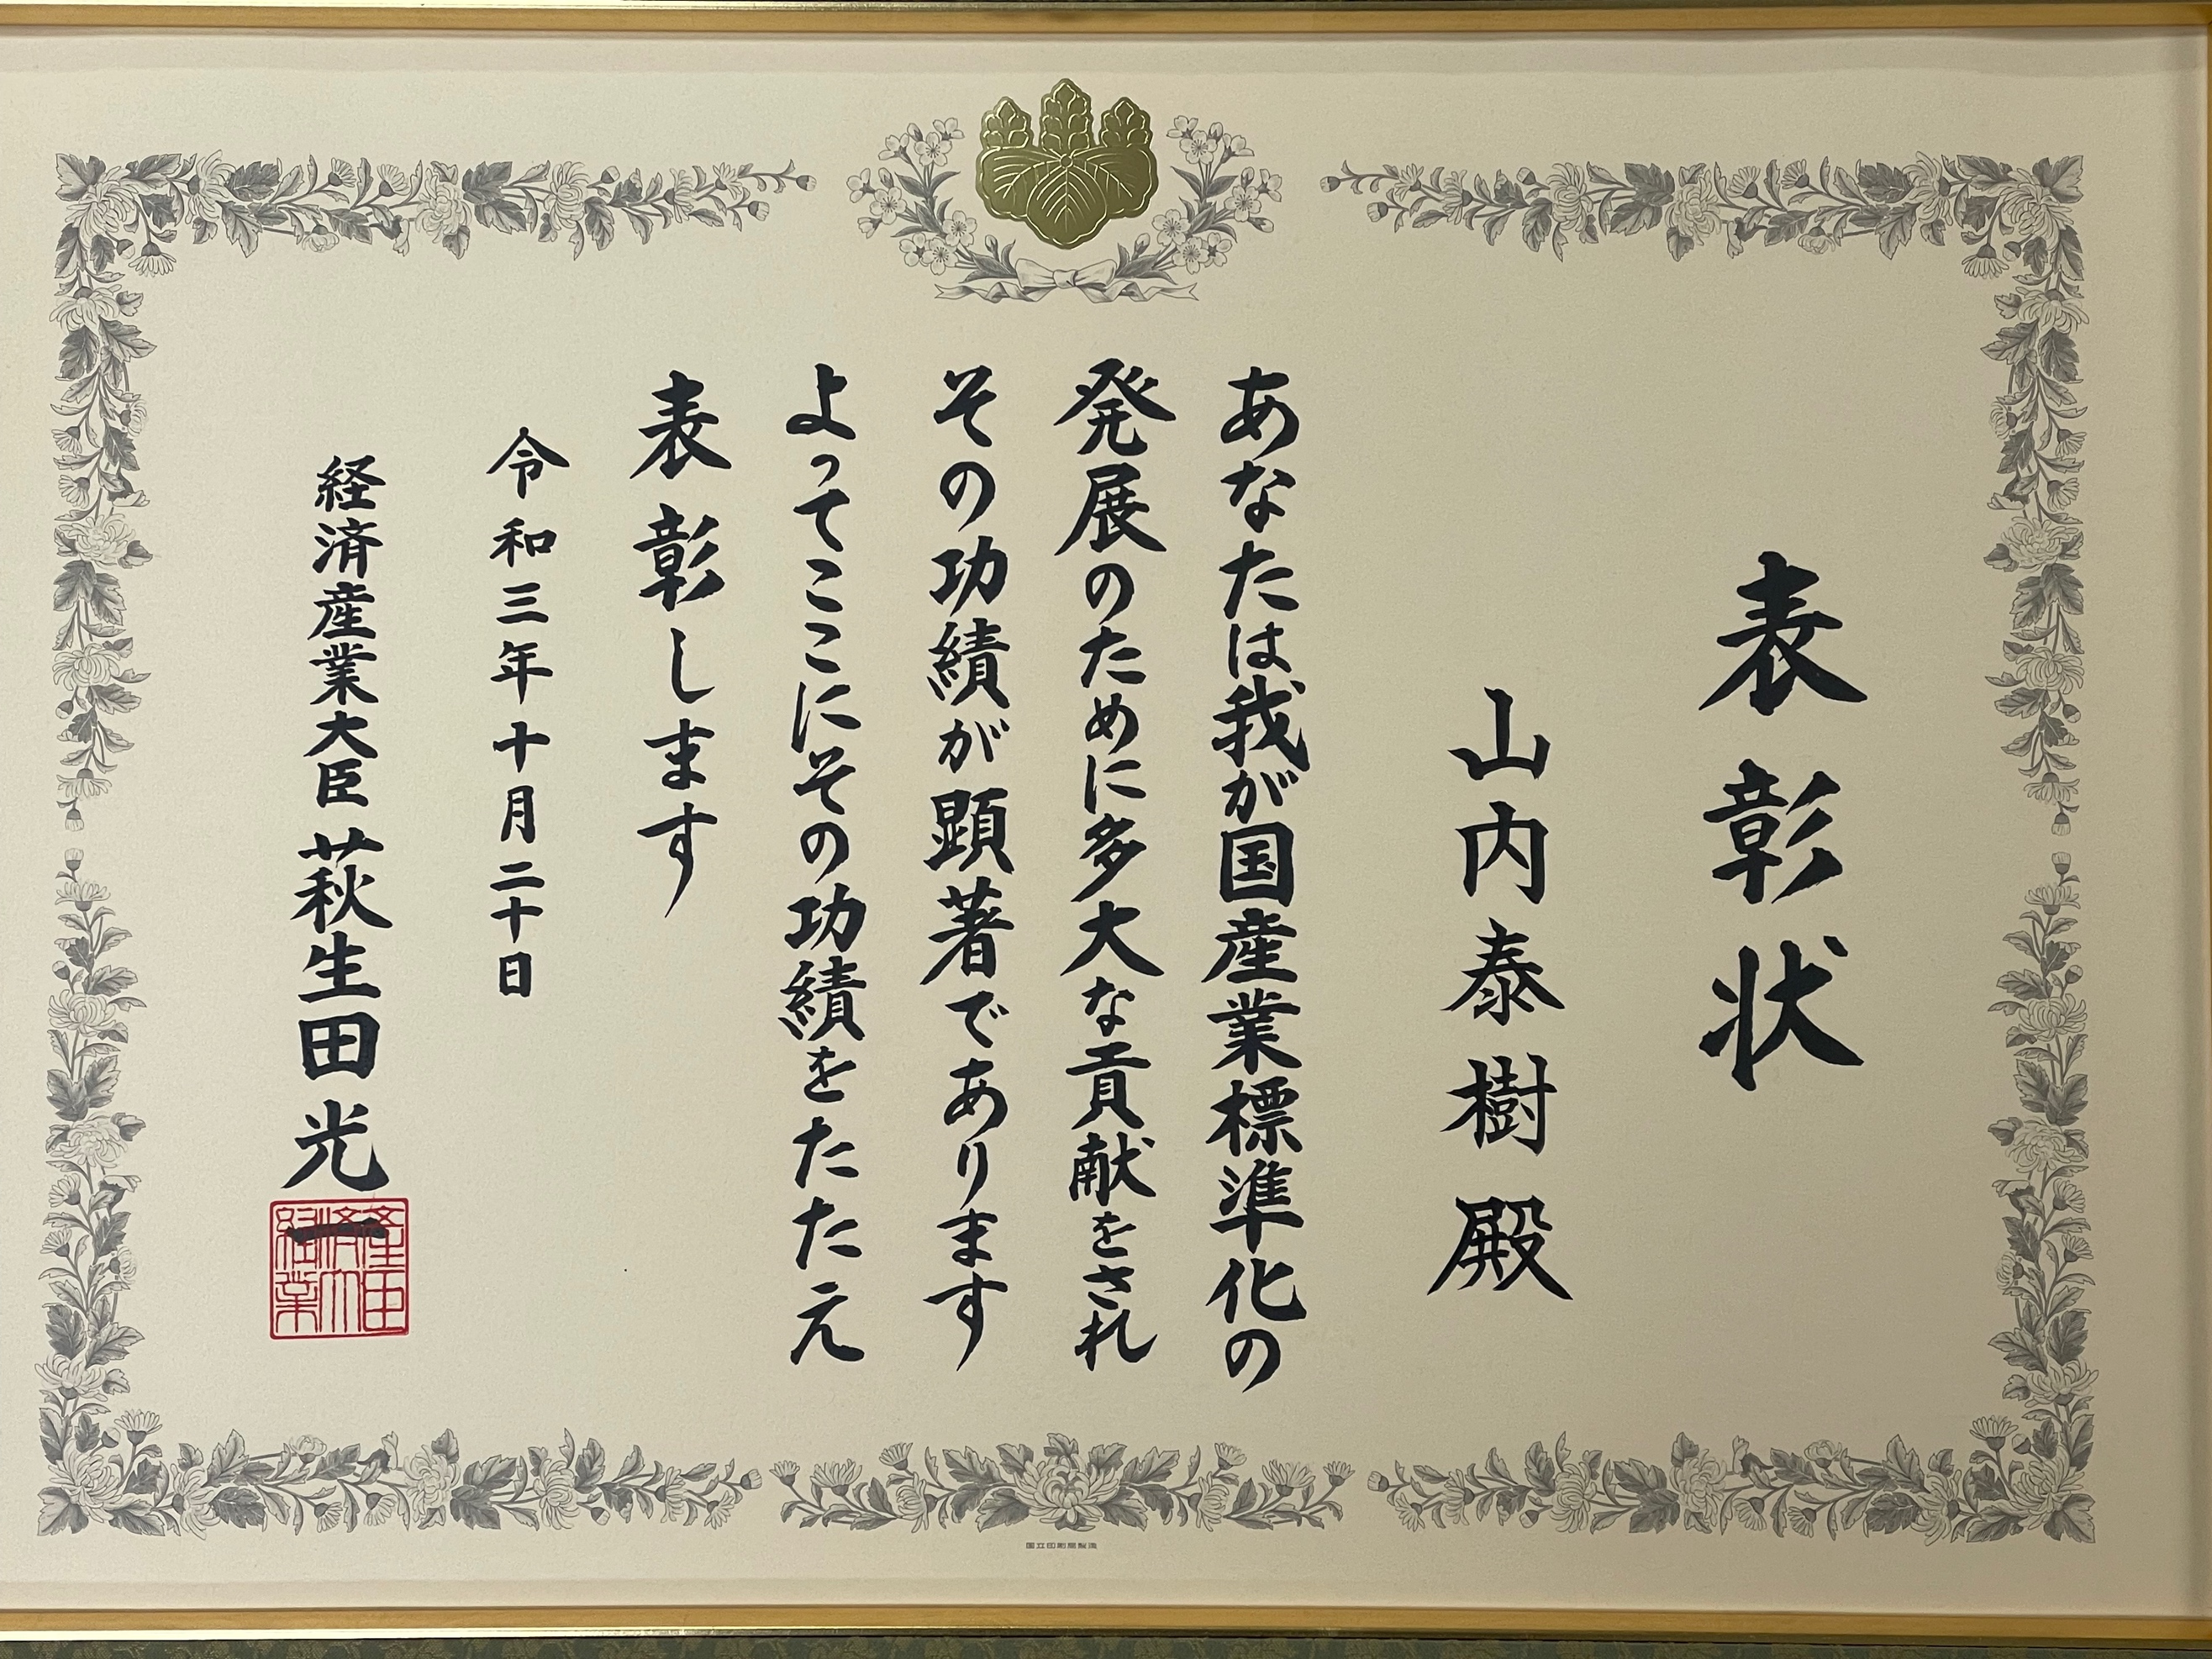 表彰状
山内泰樹殿
あなたは我が国産業標準化の
発展のために多大な貢献をされ
その功績が顕著であります
よってここにその功績をたたえ
表彰します
令和三年十月二十日
経済産業大臣 萩生田光一
経済産業大臣
国立印刷局製造